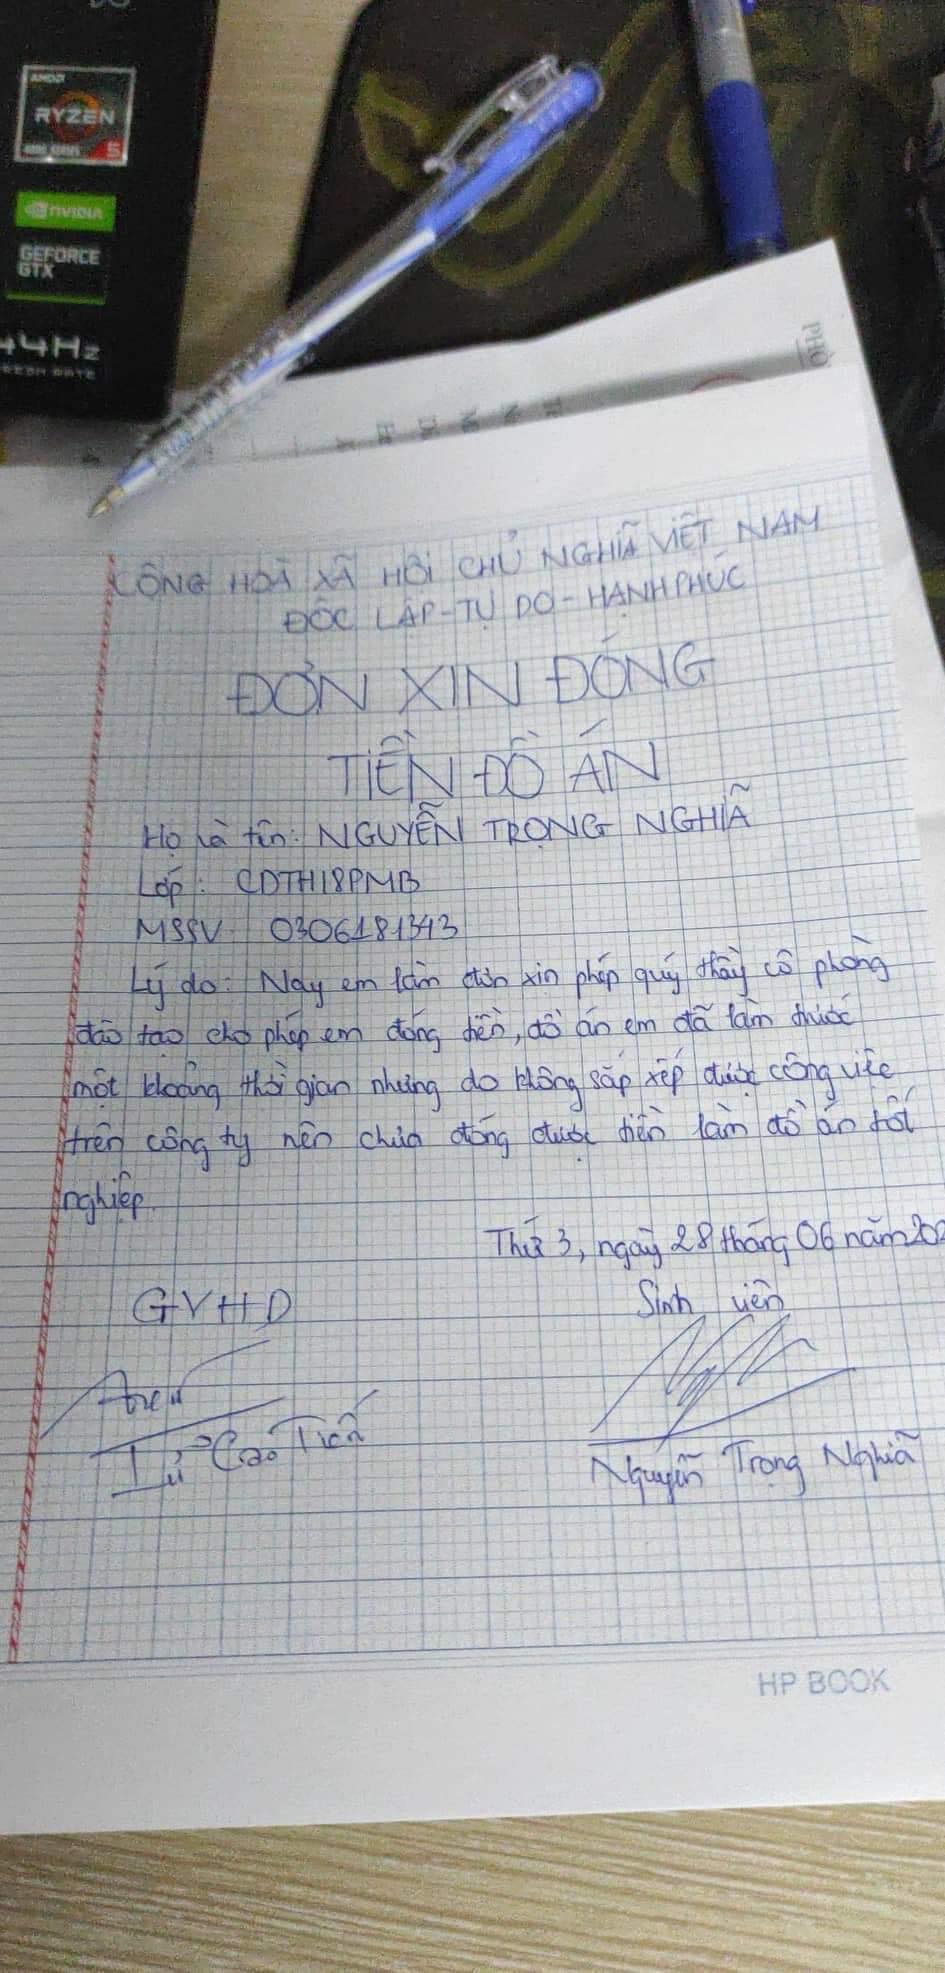 AMD
RYZEN
5
NVIDIA
GEFORCE
GTX
44Hz
PHÒ
CỘNG HOÀ XÃ HỘI CHỦ NGHĨA VIỆT NAM
ĐỘC LẬP-TỰ DO-HẠNH PHÚC
ĐƠN XIN ĐÓNG
TIỀN ĐỒ ÁN
Họ và tên: NGUYỄN TRỌNG NGHĨA
Lớp: CDTH18PMB
MSSV 0306181343
Lý do: Nay em làm đơn xin phép quý thầy cô phòng
đào tạo cho phép em đóng tiền, đồ án em đã làm trước
một khoảng thời gian nhưng do không sắp xếp được công việc
trên công ty nên chưa đóng được tiền làm đồ án tốt
nghiệp.
Thứ 3, ngày 28 tháng 06 năm 202
GVHD
Sinh viên
Lữ Cao Tiến
Nguyễn Trọng Nghĩa
HP BOOK